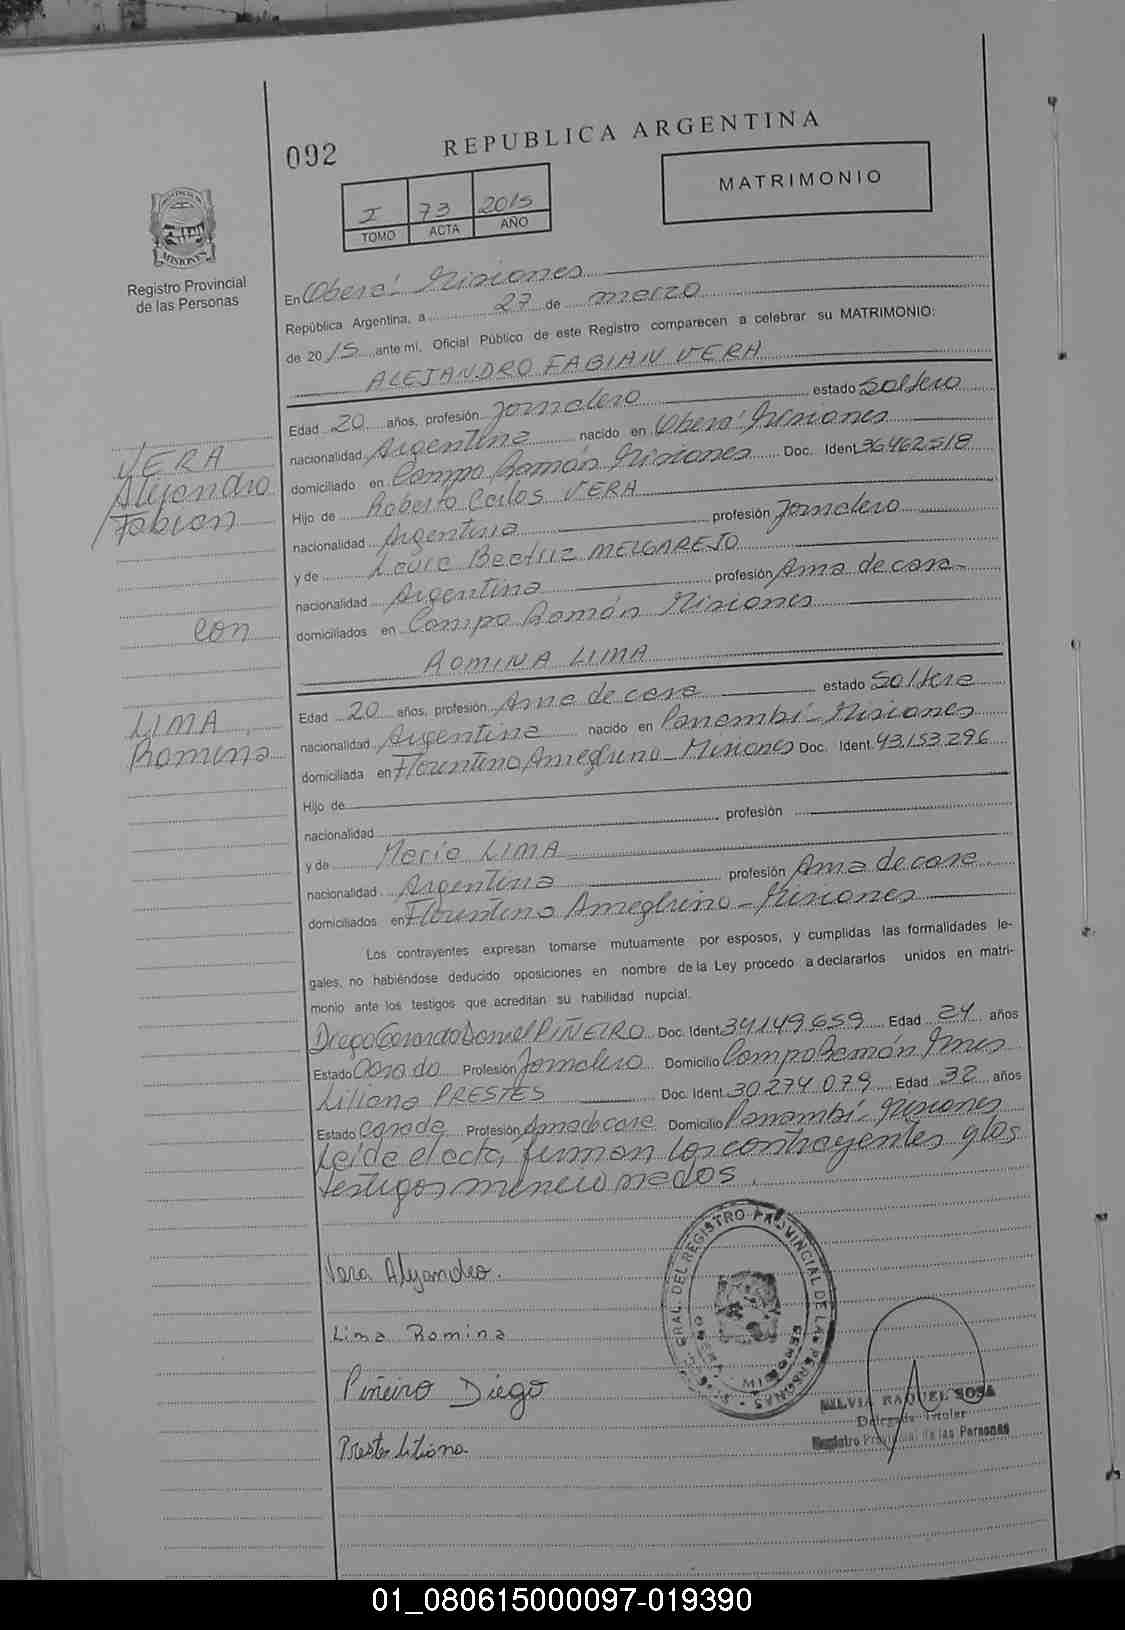 092
REPUBLICA ARGENTINA
MATRIMONIO
I 73 2015
TOMO ACTA AÑO
MISIONES
Registro Provincial
de las Personas
En Oberá Misiones
República Argentina, a 27 de marzo
de 2015 ante mí, Oficial Público de este Registro comparecen a celebrar su MATRIMONIO:
ALEJANDRO FABIAN VERA
Edad 20 años, profesión Jornalero estado Soltero
nacionalidad Argentina nacido en Oberá Misiones
domiciliado en Campo Ramón Misiones Doc. Ident 36462518
Hijo de Roberto Carlos VERA
nacionalidad Argentina profesión Jornalero
y de Laura Beatriz MELGAREJO
nacionalidad Argentina profesión Ama de casa
domiciliados en Campo Ramón Misiones
ROMINA LIMA
VERA
Alejandro
Fabian
con
LIMA
Romina
Edad 20 años, profesión Ama de casa estado Soltera
nacionalidad Argentina nacido en Panambí - Misiones
domiciliada en Florentino Ameghino - Misiones Doc. Ident. 43.153.296
Hijo de
nacionalidad profesión
y de Maria LIMA
nacionalidad Argentina profesión Ama de casa
domiciliados en Florentino Ameghino - Misiones
Los contrayentes expresan tomarse mutuamente por esposos, y cumplidas las formalidades le-
gales, no habiéndose deducido oposiciones en nombre de la Ley procedo a declararlos unidos en matri-
monio ante los testigos que acreditan su habilidad nupcial.
Diego Gerardo Daniel PIÑEIRO Doc. Ident 34149659 Edad 24 años
Estado Casado Profesión Jornalero Domicilio Campo Ramón Mnes
Liliana PRESTES Doc. Ident. 30274079 Edad 32 años
Estado Casada Profesión Ama de casa Domicilio Panambí - Misiones
Leída el acta, firman los contrayentes y los
testigos
Vera Alejandro.
Lima Romina
Piñeiro Diego
Prestes Liliana
GRAL. DEL REGISTRO PROVINCIAL DE LAS PERSONAS
SILVIA RAQUEL SOSA
Delegada Titular
Registro Provincial de las Personas
01_080615000097-019390